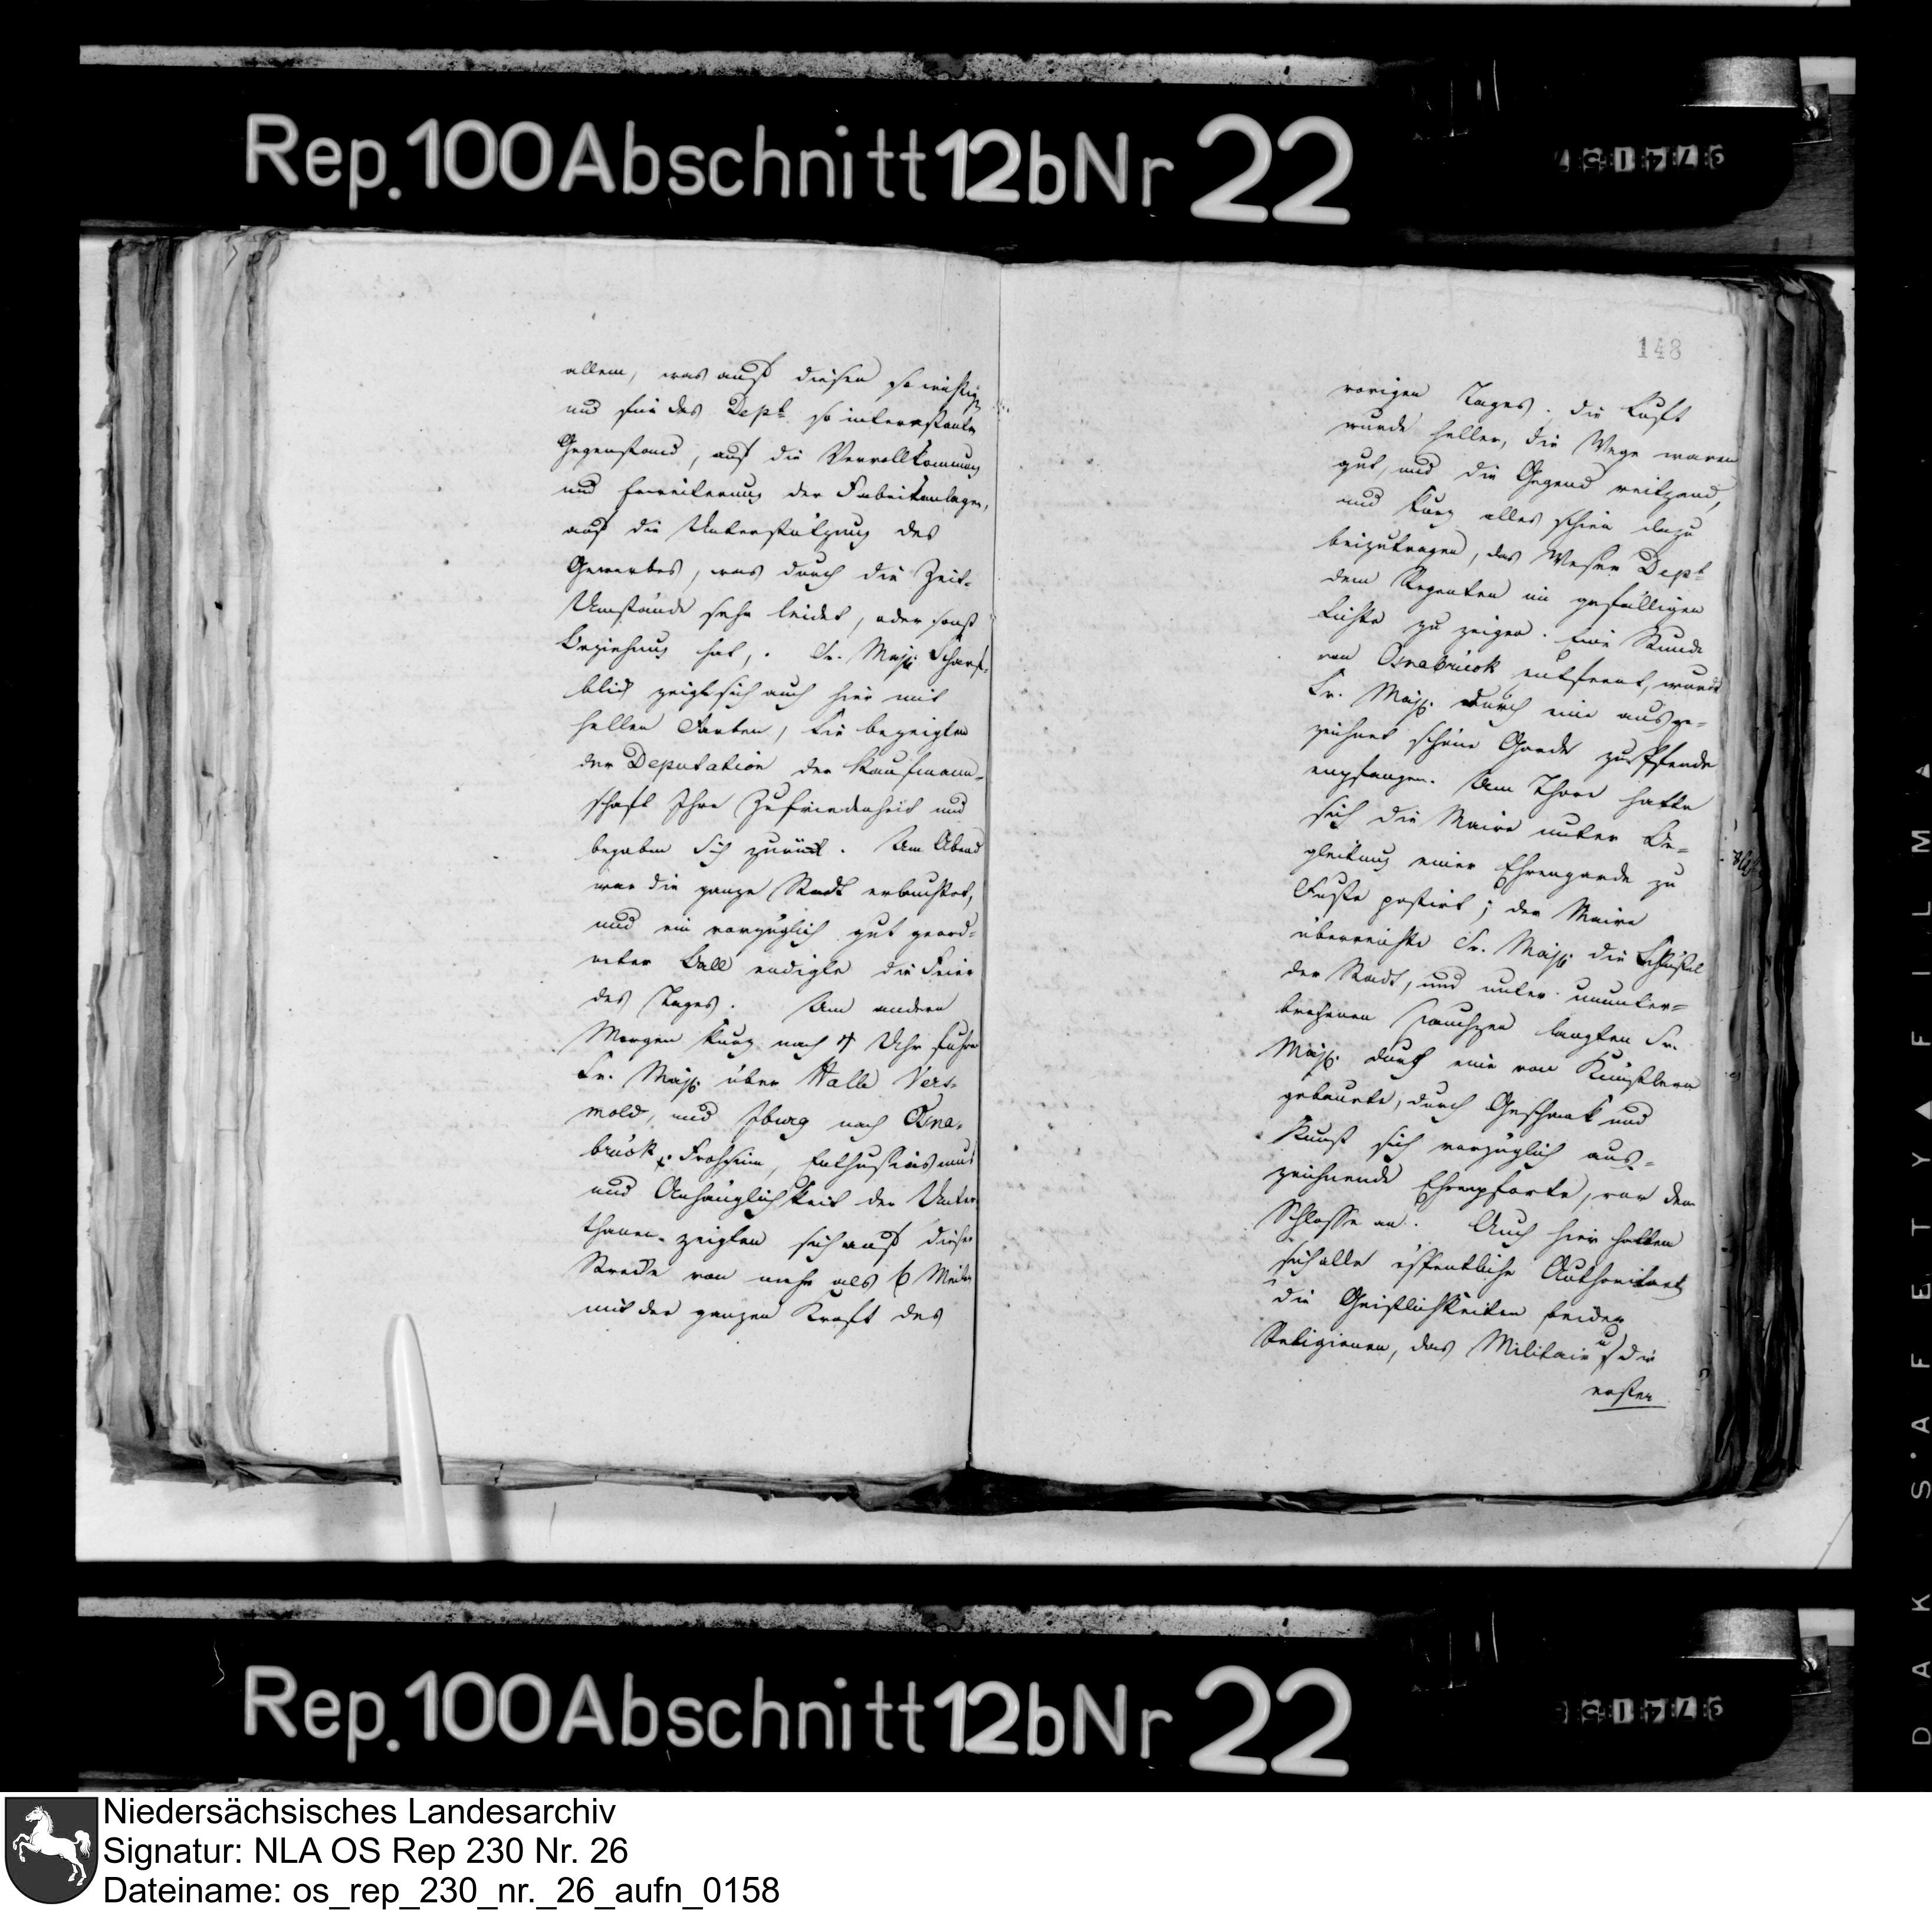 Rep. 100 Abschnitt 12b Nr 22
allem, was auf diesen so wichtigen
und für das Dept so interessanten
Gegenstand, auf die Vervollkommnung
und Erweiterung der Fabrikanlagen,
auf die Unterstützung des
Gewerbes, was durch die Zeit-
Umstände sehr leidet, oder sonst
Beziehung hat, . Sr. Maj. Scharf-
blick zeigte sich auch hier mit
hellen Farben, Sie bezeigten
der Deputation der Kaufmann-
schaft Ihre Zufriedenheit und
begaben Sich zurück. Am Abend
war die ganze Stadt erleuchtet,
und ein vorzüglich gut geord-
neter Ball endigte die Feier
des Tages. Am andern
Morgen kurz nach 4 Uhr fuhren
Sr. Maj. über Halle Vers-
mold, und Iburg nach Osna-
brück. Frohsinn, Enthusiasmus
und Anhänglichkeit der Unter
thanen zeigten sich auf dieser
Strecke von mehr als 6 Meilen
mit der ganzen Kraft des
148
vorigen Tages. Die Luft
wurde heller, die Wege waren
gut, und die Gegend reitzend,
und kurz alles schien dazu
beizutragen, das Weser Dept
dem Regenten im gefälligen
Lichte zu zeigen. Eine Stunde
von Osnabrück entfernt, wurde
Sr. Maj. durch eine ausge-
zeichnet schöne Garde zu Pferde
empfangen. Am Thore hatte
sich die Maire unter Be-
gleitung einer Ehrengarde zu
Fuße postirt; der Maire
überreichte Sr. Maj. die Schlüssel
der Stadt, und unter ununter-
brochenen Jauchzen langten Sr.
Maj. durch eine von Künstlern
gebauete, durch Geschmak und
Kunst sich vorzüglich aus-
zeichnende Ehrenpforte, vor dem
Schlosse an. Auch hier hatten
sich alle öffentliche Authoritaet
die Geistlichkeiten beider
Religionen, das Militair u die
ersten
Rep. 100 Abschnitt 12b Nr 22
DAK S'AFETY FILM
Niedersächsisches Landesarchiv
Signatur: NLA OS Rep 230 Nr. 26
Dateiname: os_rep_230_nr._26_aufn_0158